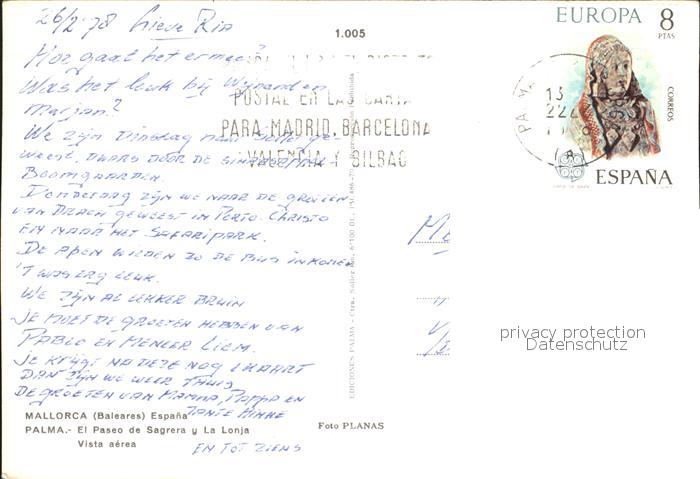 26/2 '78 Lieve Ria
1.005
EUROPA 8
PTAS
CORREOS
ESPAÑA
Hoe gaat het ermee?
Was het leuk bij Wijnand en
Marjan?
We zijn Dinsdag naar ge-
weest, dwars door de
Boomgaarden.
Donderdag zijn we naar de grotten
van Drach geweest in Porto-Christo
en naar het Safaripark.
De apen wilden zo de bus inkomen
't was erg leuk.
We zijn al lekker bruin
Je moet de groeten hebben van
Pablo en Meneer Liem.
Je krijgt na deze nog 1 kaart
Dan zijn we weer thuis
De groeten van Mamma, Pappa en
Tante Minne
En tot ziens
POSTAL EN LAS CARTA
PARA MADRID, BARCELONA
VALENCIA Y BILBAO
PALMA
13
(A)
EDICIONES PALMA
MALLORCA (Baleares) España
PALMA.- El Paseo de Sagrera y La Lonja
Vista aérea
Foto PLANAS
privacy protection
Datenschutz